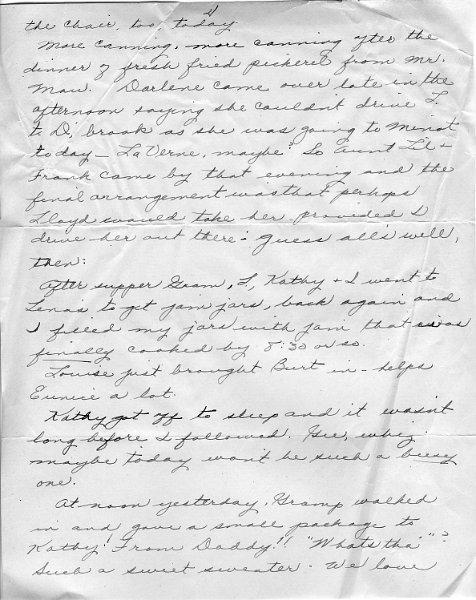 the chair, too today
More canning, more canning after the
dinner of fresh fried pickerel from Mr.
Maw. Darlene came over late in the
afternoon saying she couldnt drive L.
to D, brook as she was going to Minot
today - La Verne, maybe? So Aunt Lb +
Frank came by that evening and the
final arrangement was that perhaps
Lloyd would take her provided I
drive her out there - guess all's well,
then:
After supper Gram, L, Kathy + I went to
Lena's to get jam jars, back again and
I filled my jars with jam that was
finally cooked by 8:30 or so.
Louise just brought Burt in - helps
Eunice a lot.
Kathy got off to sleep and it wasn't
long before I followed. Gee, why
maybe today wont be such a busy
one.
At noon yesterday, Gramp walked
in and gave a small package to
Kathy! From Daddy!! "Whats tha"?
Such a sweet sweater. We love